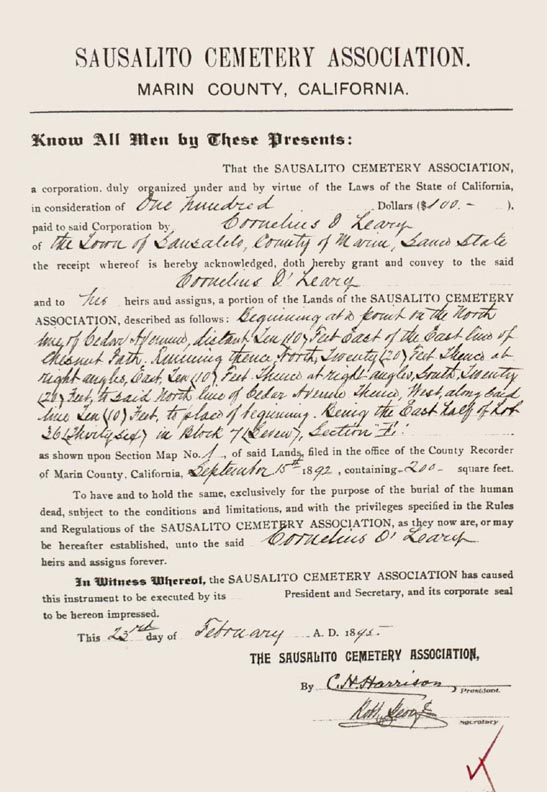 SAUSALITO CEMETERY ASSOCIATION.
MARIN COUNTY, CALIFORNIA.
Know All Men by These Presents:
That the SAUSALITO CEMETERY ASSOCIATION,
a corporation, duly organized under and by virtue of the Laws of the State of California,
in consideration of One hundred Dollars ($100.- ),
paid to said Corporation by Cornelius O'Leary
of the Town of Sausalito, County of Marin, Same State
the receipt whereof is hereby acknowledged, doth hereby grant and convey to the said
Cornelius O'Leary
and to his heirs and assigns, a portion of the Lands of the SAUSALITO CEMETERY
ASSOCIATION, described as follows: Beginning at a point on the North
line of Cedar Avenue, distant Ten (10) Feet East of the East line of
Chesnut Path. Running thence North, Twenty (20) Feet Thence at
right angles, East, Ten (10) Feet Thence at right angles, South, Twenty
(20) Feet, to said North line of Cedar Avenue Thence, West, along said
line Ten (10) Feet, to place of beginning. Being the East half of Lot
36 (Thirty six) in Block 7 (Seven), Section
as shown upon Section Map No. 1, of said Lands, filed in the office of the County Recorder
of Marin County, California, September 15th 1892, containing -200- square feet.
To have and to hold the same, exclusively for the purpose of the burial of the human
dead, subject to the conditions and limitations, and with the privileges specified in the Rules
and Regulations of the SAUSALITO CEMETERY ASSOCIATION, as they now are, or may
be hereafter established, unto the said Cornelius O'Leary
heirs and assigns forever.
In Witness Whereof, the SAUSALITO CEMETERY ASSOCIATION has caused
this instrument to be executed by its President and Secretary, and its corporate seal
to be hereon impressed.
This 23rd day of February A. D. 1895.
THE SAUSALITO CEMETERY ASSOCIATION,
By C.H. Harrison, President.
Secretary